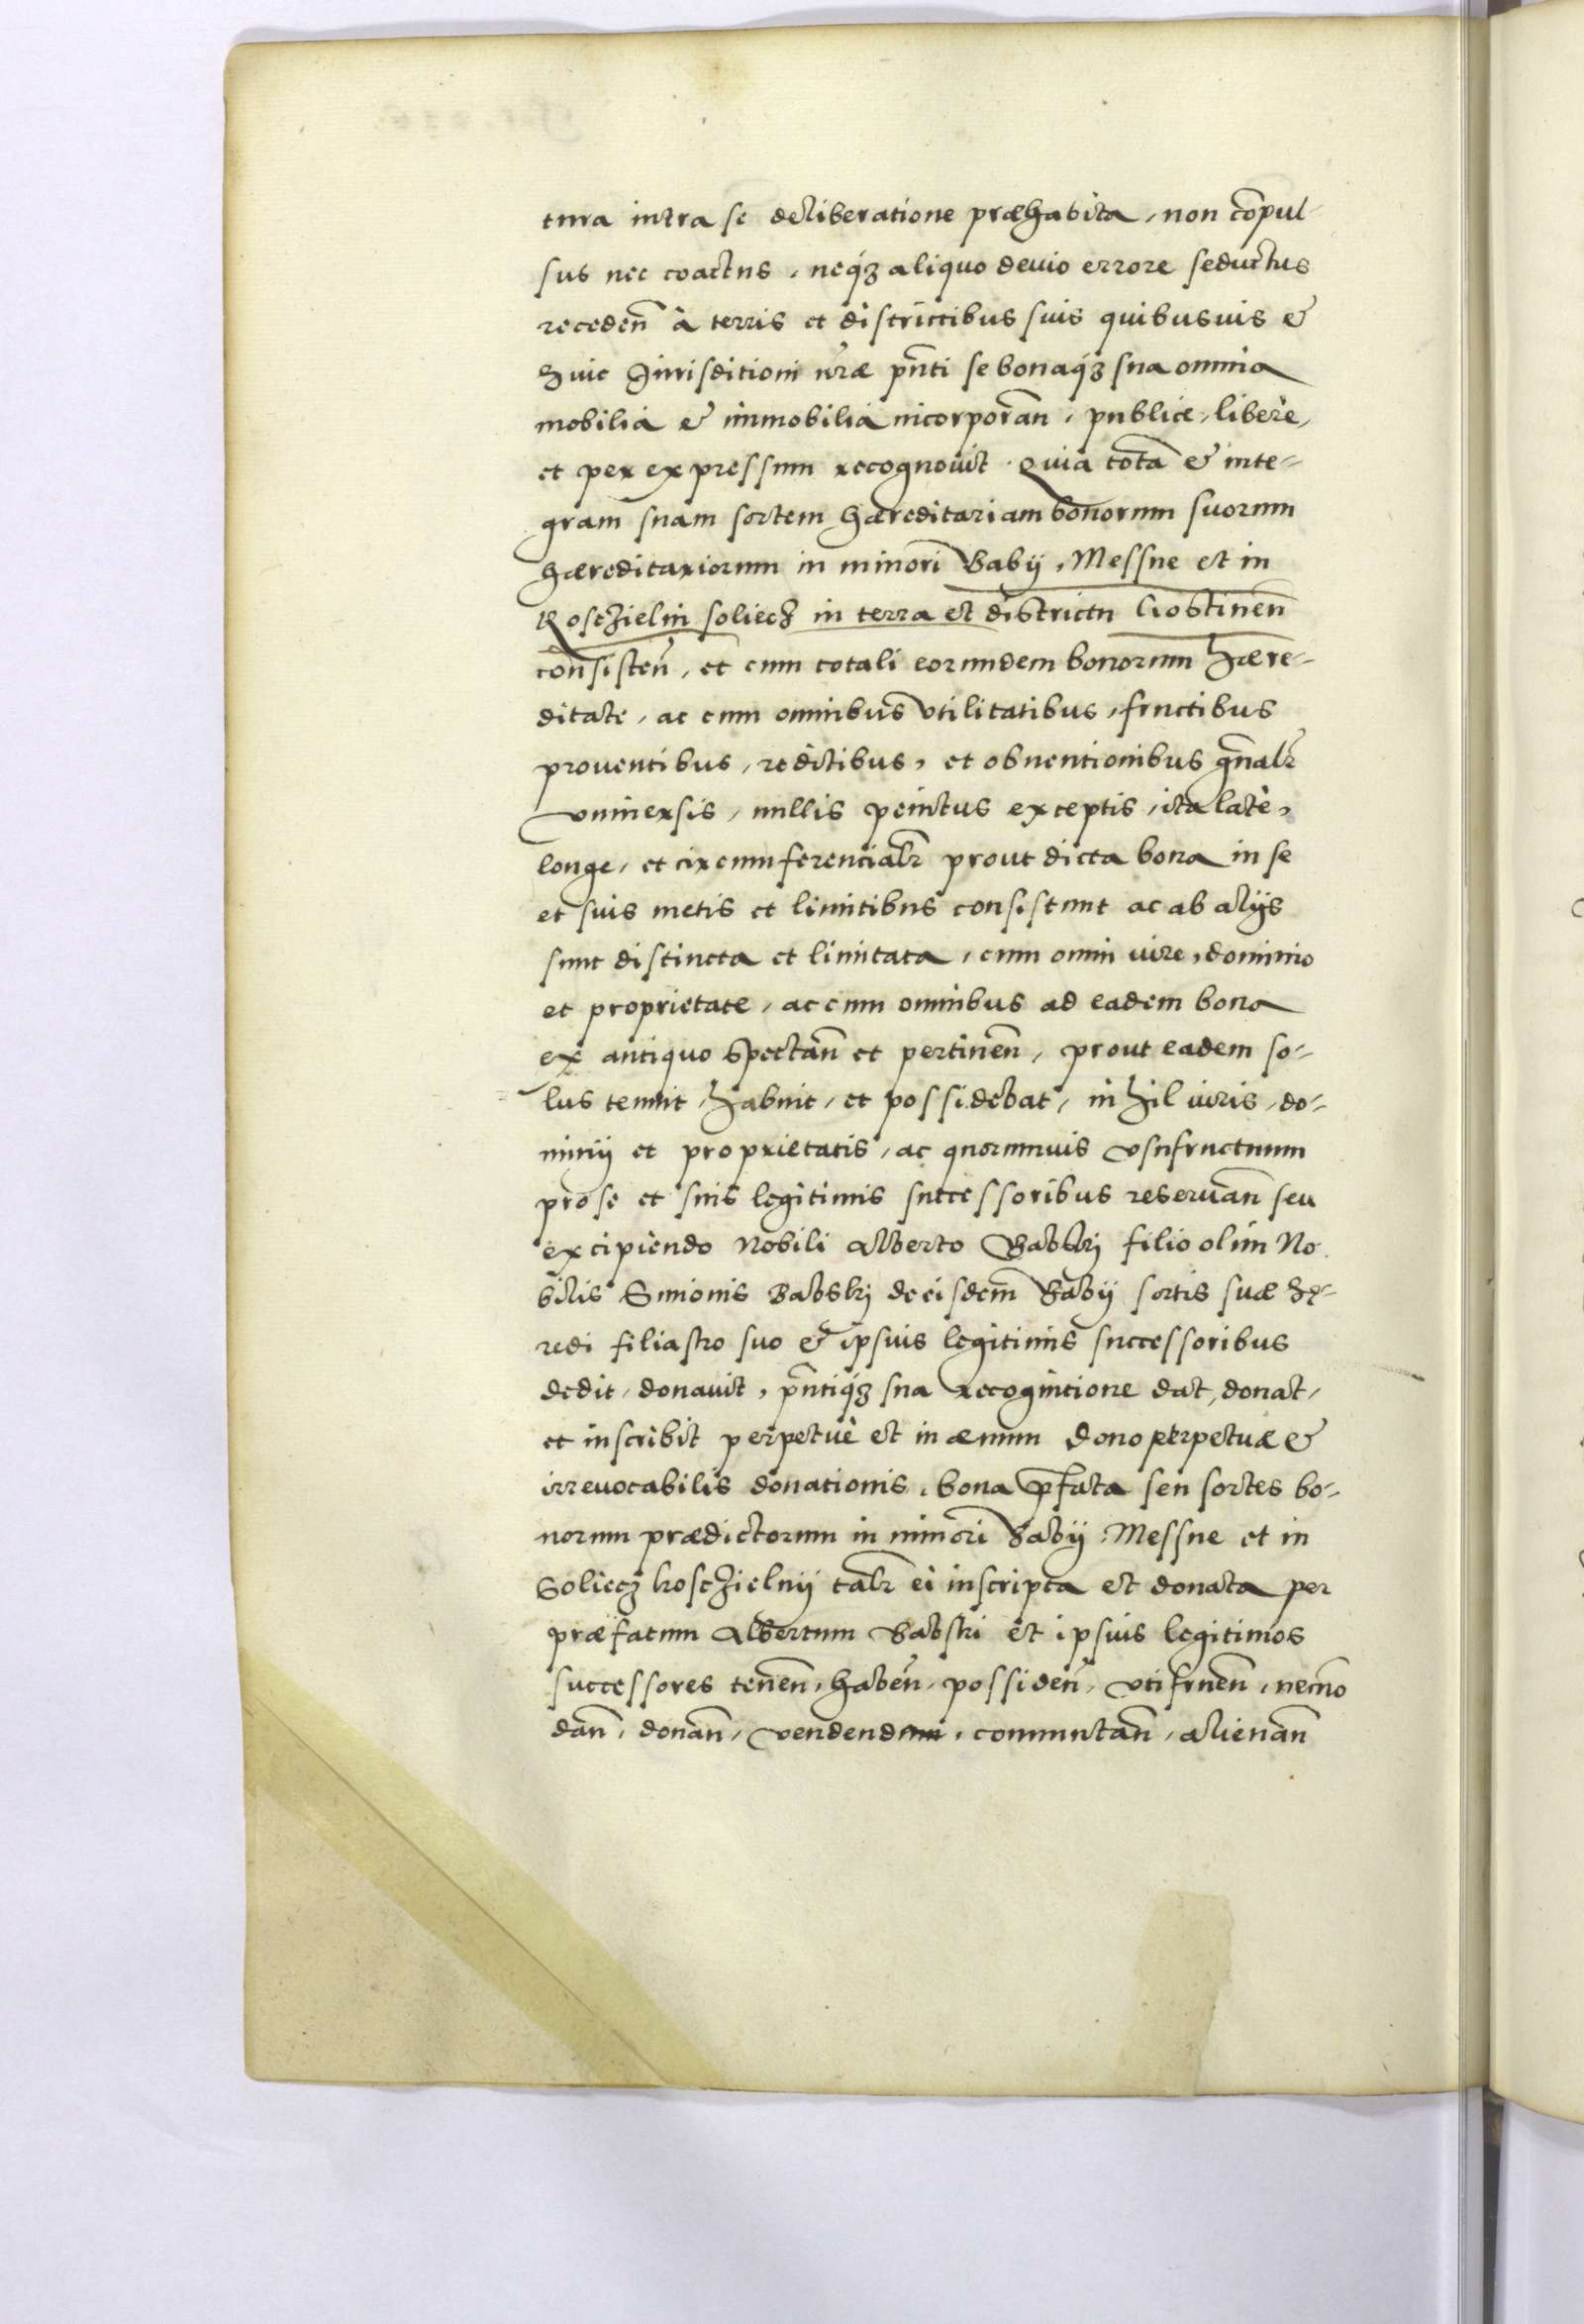 tura intra se deliberatione præhabita, non cõpul-
sus nec coactus, neq́ꝫ aliquo devio errore seductus
recedeñ à terris et districtibus suis quibusuis &
huic Jurisditioni nr̃æ pñti se bonaq́ꝫ sua omnia
mobilia & immobilia incorporañ, publice, libere,
et per expressum recognouit. Quia totã & inte-
gram suam sortem hæreditariam bonorum suorum
hæreditariorum in minori Babij, Messne et in
Kosczielni soliecz in terra et districtu Gostineñ
consisteñ, et cum totali eorundem bonorum hære-
ditate, ac cum omnibus vtilitatibus, fructibus
prouentibus, reditibus, et obuentionibus gñalr̃
vniuersis, nullis penitus exceptis, ita latè,
longe, et circumferencialr̃ prout dicta bona in se
et suis metis et limitibus consistunt ac ab alijs
sunt distincta et limitata, cum omni iure, dominio
et proprietate, ac cum omnibus ad eadem bona
ex antiquo spectañ et pertineñ, prout eadem so-
lus tenuit, habuit, et possidebat, nihil iuris, do-
minij et proprietatis, ac quorumuis vsufructuum
pro se et suis legitimis successoribus reseruañ seu
excipiendo Nobili Alberto Babski filio olim No
bilis Simonis Babskij de eisdem̃ Babij sortis suæ hę-
redi filiastro suo & ipsuis legitimis successoribus
dedit, donauit, pñtiq́ꝫ sua recognitione dat, donat,
et inscribit perpetuè et in æuum dono perpetuæ &
irreuocabilis donationis, bona p̃fata seu sortes bo-
norum prædictorum in minori Babij, Messne et in
Soliecz koscZielnij talr̃ ei inscripta et donata per
præfatum Albertum Babski et ipsuis legitimos
successores teneñ, habeñ, possideñ, vtifrueñ, necnõ
dañ, donañ, vendend, commutañ, alienañ